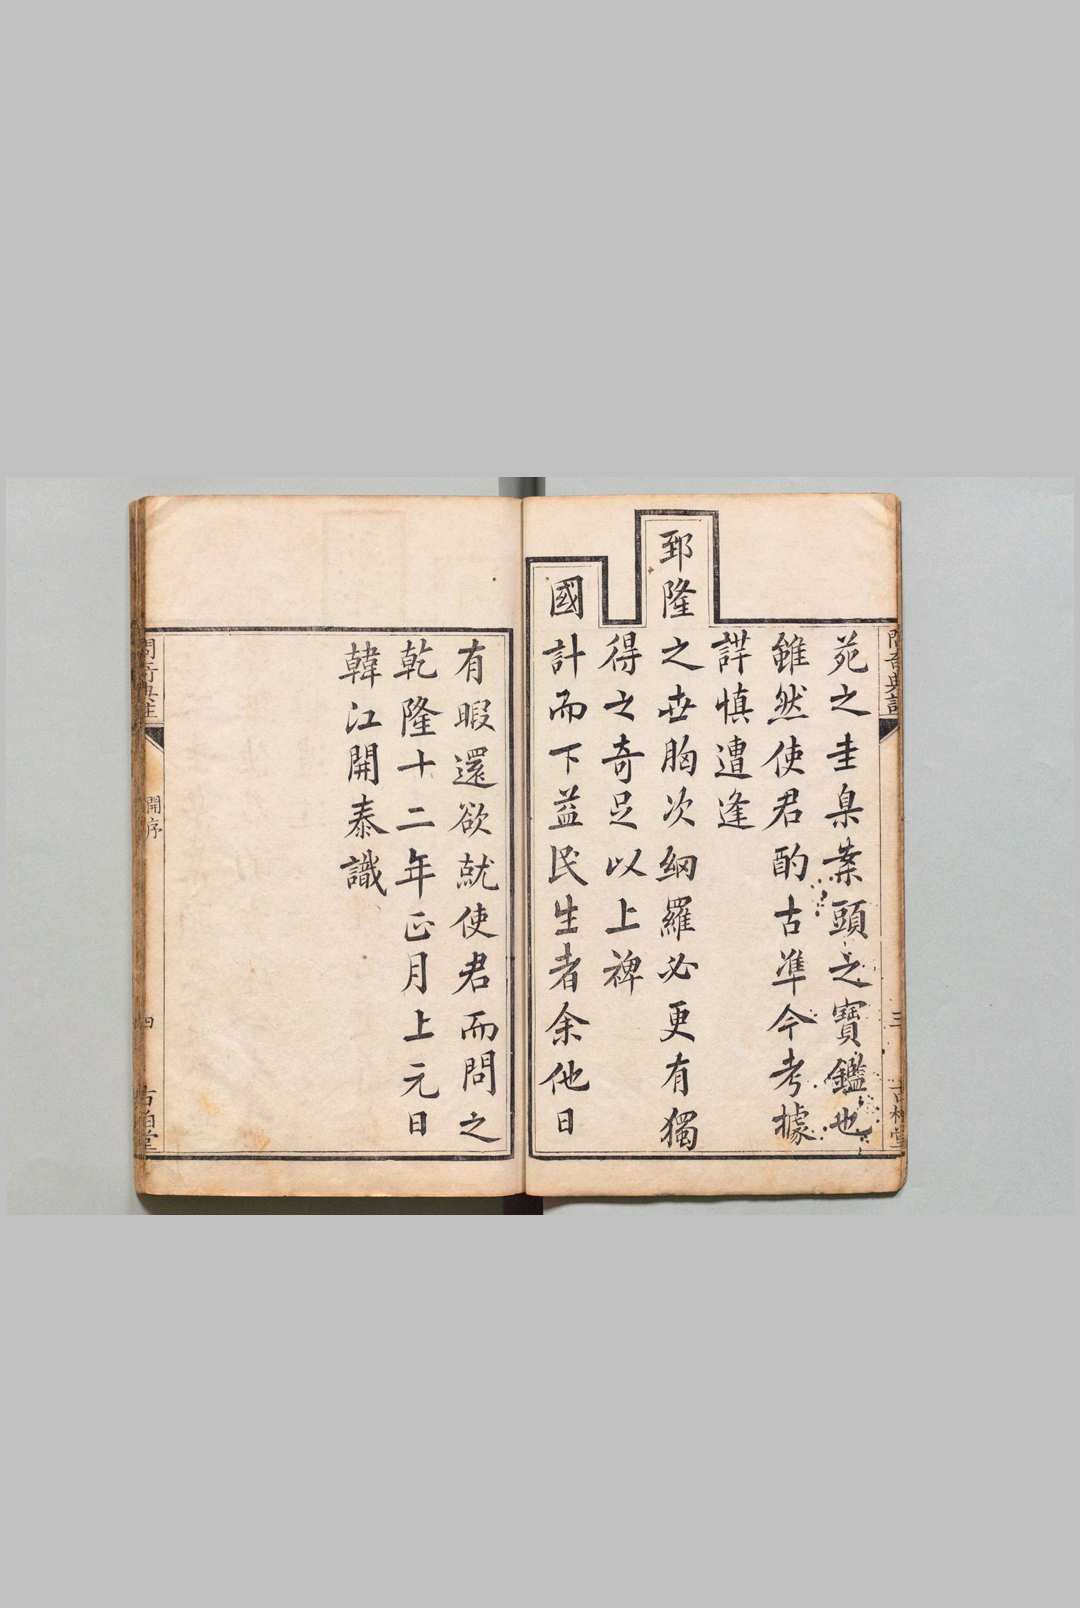 苑之圭臬案頭之寶鑑也
雖然使君酌古準今考據
詳慎遭逢
郅隆之世胸次網羅必更有獨
得之奇足以上裨
國計而下益民生者余他日
有暇還欲就使君而問之
乾隆十二年正月上元日
韓江開泰識
開序
四
三